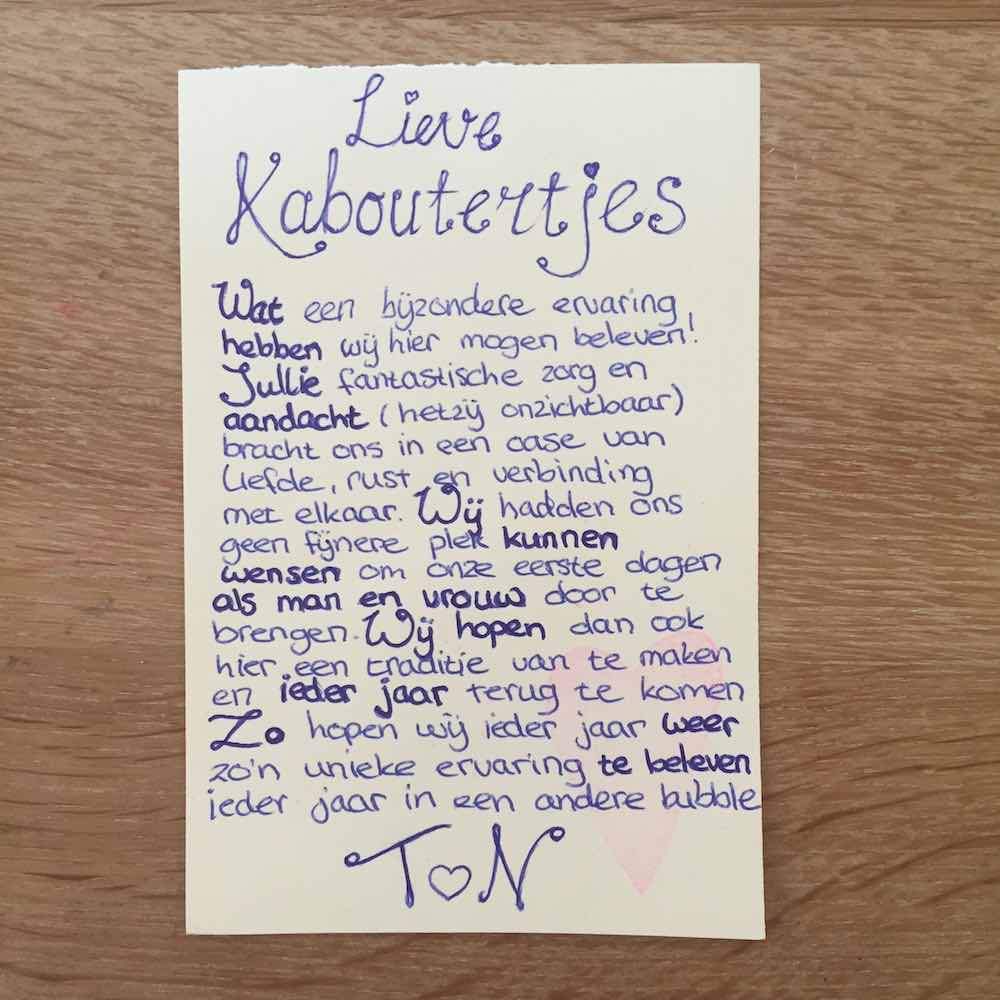 Lieve
Kaboutertjes
Wat een bijzondere ervaring
hebben wij hier mogen beleven!
Jullie fantastische zorg en
aandacht (hetzij onzichtbaar)
bracht ons in een oase van
liefde, rust en verbinding
met elkaar. Wij hadden ons
geen fijnere plek kunnen
wensen om onze eerste dagen
als man en vrouw door te
brengen. Wij hopen dan ook
hier een traditie van te maken
en ieder jaar terug te komen
Zo hopen wij ieder jaar weer
zo'n unieke ervaring te beleven
ieder jaar in een andere bubble
T♡N